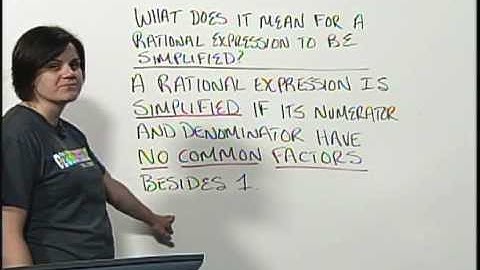 WHAT DOES IT MEAN FOR A
RATIONAL EXPRESSION TO BE
SIMPLIFIED?
A RATIONAL EXPRESSION IS
SIMPLIFIED IF ITS NUMERATOR
AND DENOMINATOR HAVE
NO COMMON FACTORS
BESIDES 1.